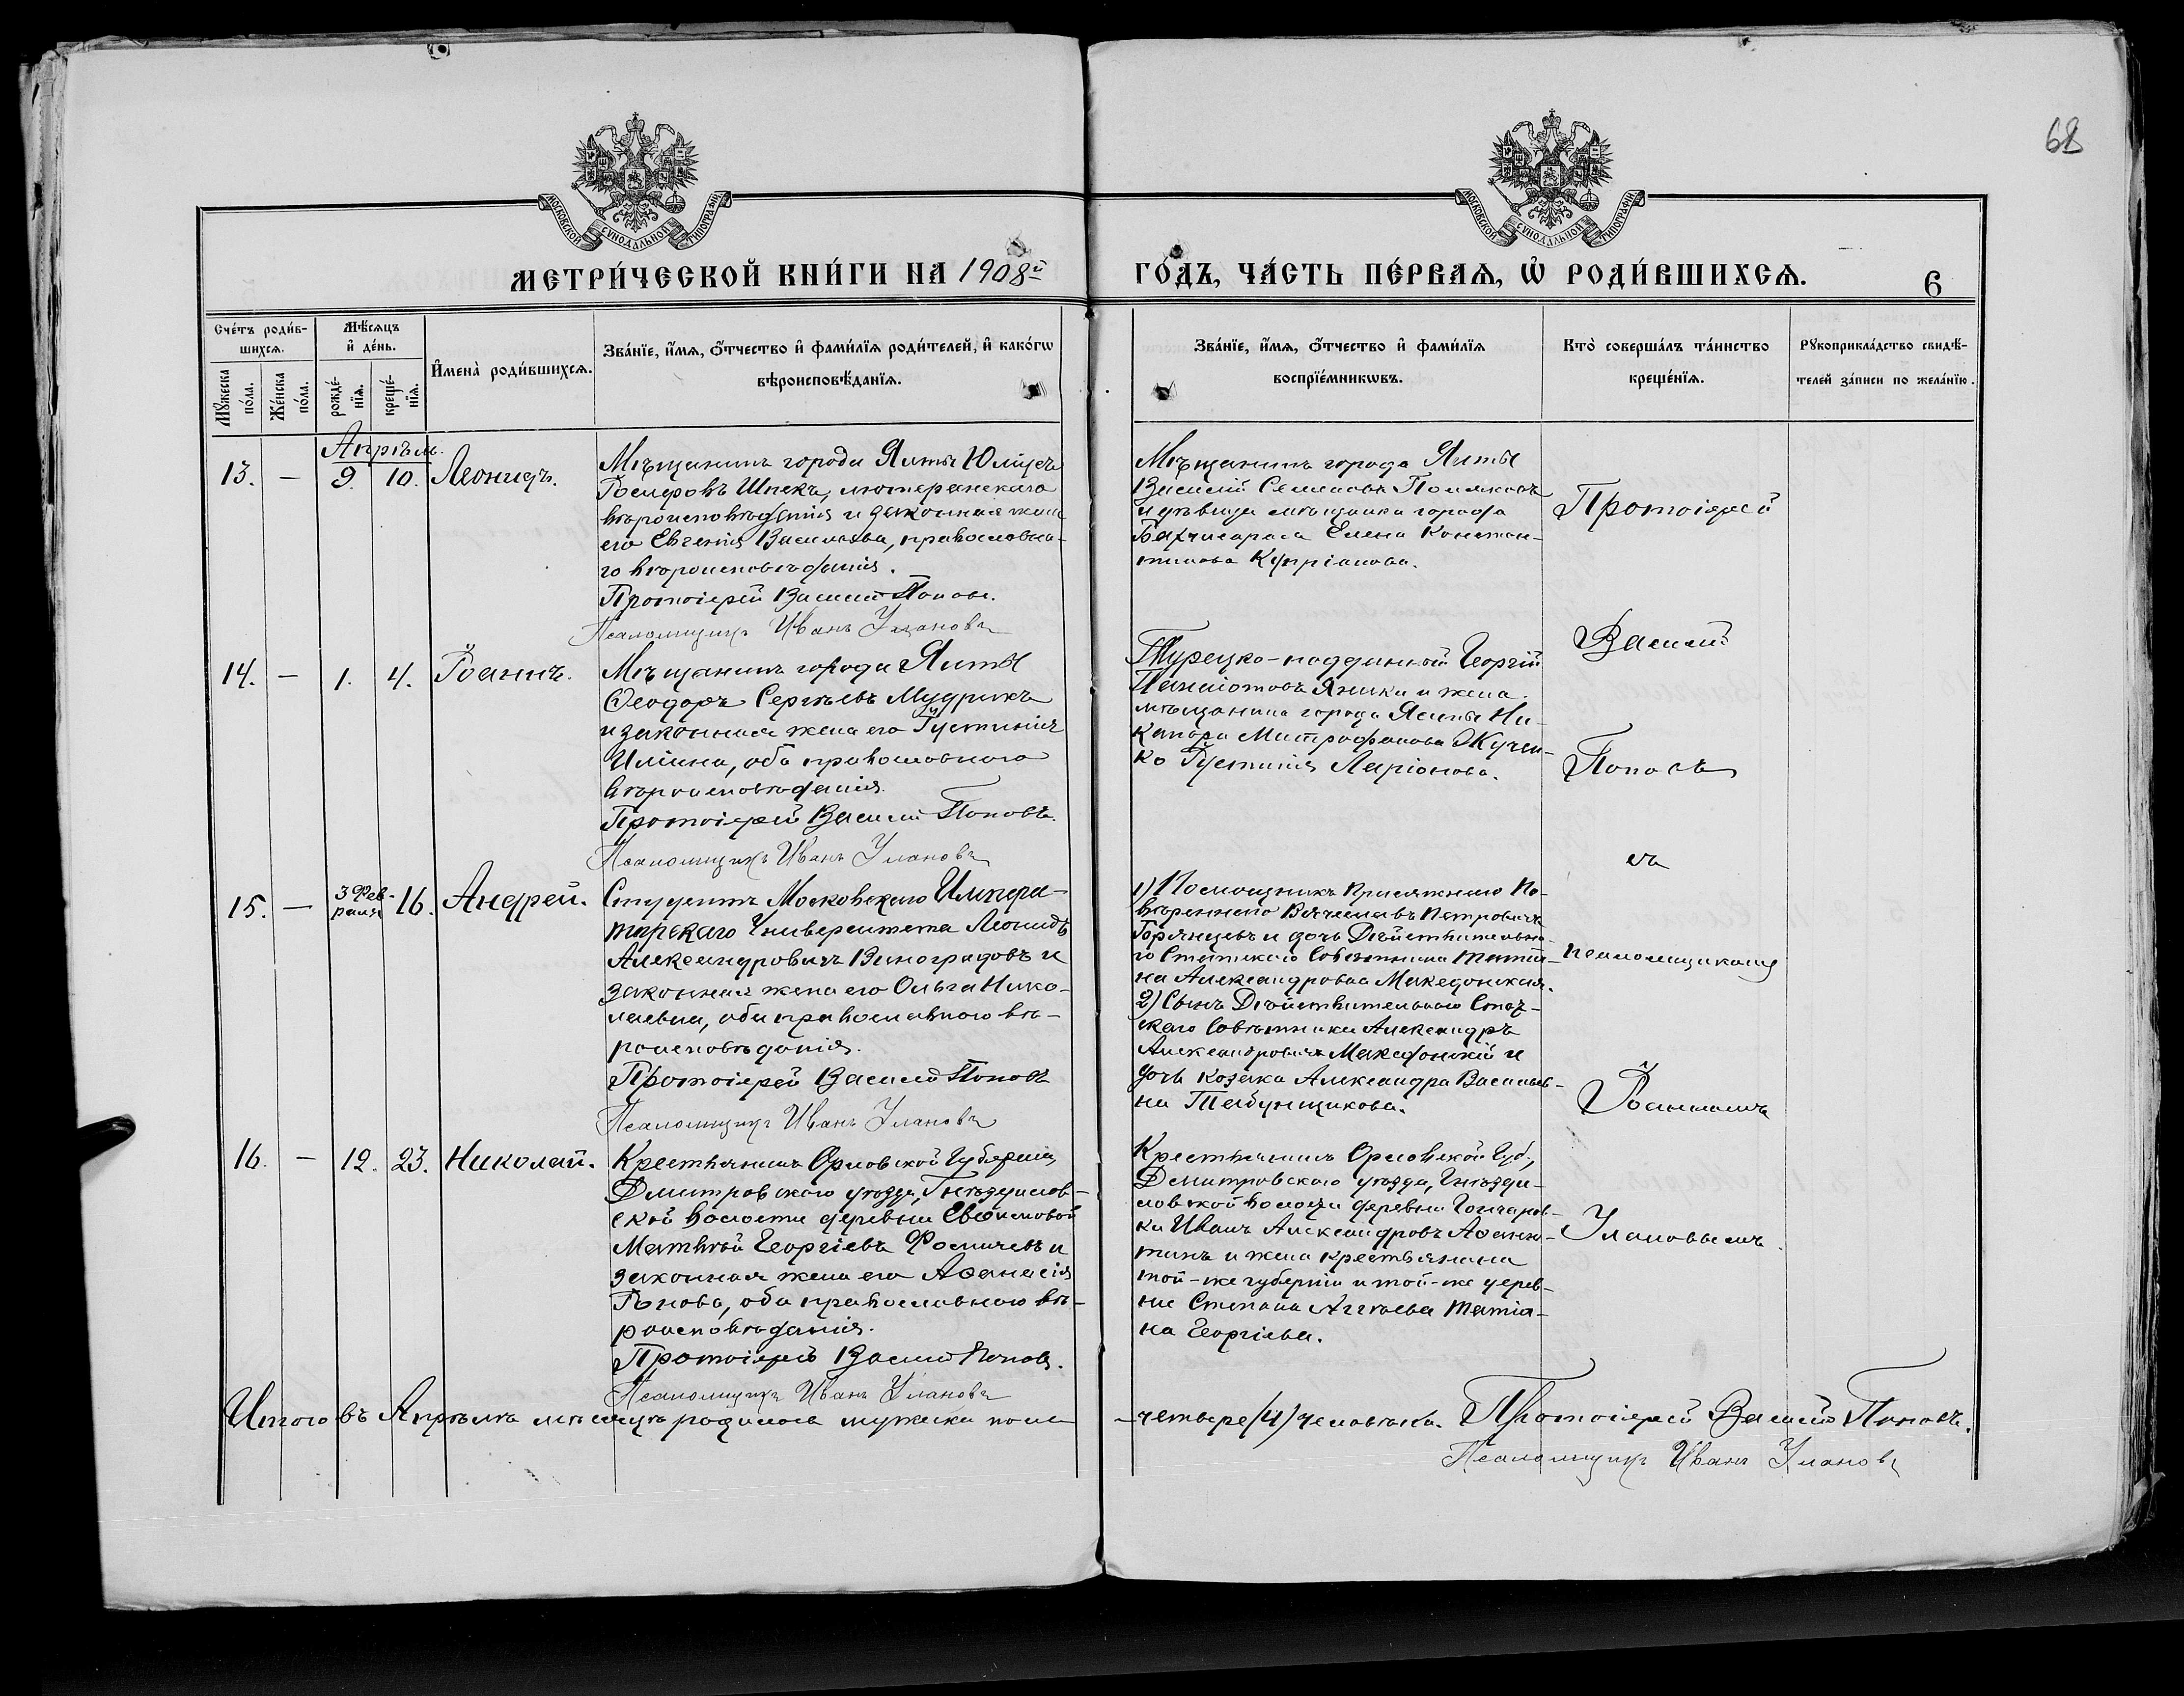 68
МОСКОВСКОЙ СѴНОДАЛЬНОЙ ТИПОГРАФІИ
МОСКОВСКОЙ СѴНОДАЛЬНОЙ ТИПОГРАФІИ
МЕТРИ́ЧЕСКОЙ КНИ́ГИ НА 1908й
ГО́ДЪ, ЧА́СТЬ ПЕ́РВАѦ, Ѡ҆ РОДИ́ВШИХСѦ.
6
Сче́тъ роди́в-
шихсѧ.
Мѣ́сѧцъ
и҆ де́нь.
Мꙋ́жеска
по́ла.
Же́нска
по́ла.
рожде́-
нїѧ.
креще́-
нїѧ.
И҆мена̀ роди́вшихсѧ.
Зва́нїе, и҆́мѧ, ѻ҆́тчество и҆ фами́лїѧ роди́телей, и҆ како́гѡ
вѣроисповѣ́данїѧ.
Зва́нїе, и҆́мѧ, ѻ҆́тчество и҆ фами́лїѧ
воспрїе́мникѡвъ.
Кто̀ соверша́лъ та́инство
креще́нїѧ.
Рꙋкоприкла́дство свидѣ́-
телей за́писи по жела́нїю.
Апрѣль.
13. — 9. 10. Леонидъ.
Мѣщанинъ города Ялты Юліусъ
Шпекъ, лютеранскаго
вѣроисповѣданія и законная жена
его Евгенія Васильева, православна-
го вѣроисповѣданія.
Протоіерей Василій Поповъ.
Псаломщикъ Иванъ Улановъ
Мѣщанинъ города Ялты
Василій Семеновъ Поляковъ
и дѣвица мѣщанка города
Бахчисарая Елена Констан-
тинова Купріанова.
14. — 1. 4. Іоаннъ.
Мѣщанинъ города Ялты
Ѳеодоръ Сергѣевъ Мудрикъ
и законная жена его Іустинія
Иліина, оба православнаго
вѣроисповѣданія.
Протоіерей Василій Поповъ.
Псаломщикъ Иванъ Улановъ
Турецко-подданный Георгій
Панаіотовъ Яники и жена
мѣщанина города Ялты Ни-
канора Митрофанова Жучен-
ко Іустинія Ларіонова.
15. — 3 Фев-
раля 16. Андрей.
Студентъ Московскаго Импера-
торскаго Университета Леонидъ
Александровичъ Виноградовъ и
законная жена его Ольга Нико-
лаевна, оба православнаго вѣ-
роисповѣданія.
Протоіерей Василій Поповъ
Псаломщикъ Иванъ Улановъ
1) Помощникъ Присяжнаго По-
вѣреннаго Вячеславъ Петровичъ
Горянцевъ и дочь Дѣйствительна-
го Статскаго Совѣтника Татіа-
на Александровна Македонская.
2) Сынъ Дѣйствительнаго Стат-
скаго Совѣтника Александръ
Александровичъ Македонскій и
дочь козака Александра Васильев-
на Табунщикова.
16. — 12. 23. Николай.
Крестьянинъ Орловской Губерніи,
Дмитровскаго уѣзда, Гнѣздилов-
ской волости деревни Евѳимовой
Матвѣй Георгіевъ Фомичевъ и
законная жена его Аѳанасія
оба православнаго вѣ-
роисповѣданія.
Протоіерей Василій Поповъ.
Псаломщикъ Иванъ Улановъ
Крестьянинъ Орловской Губ.,
Дмитровскаго уѣзда, Гнѣзди-
ловской волости деревни Гончаров-
ки Иванъ Александровъ
и жена крестьянина
той-же губерніи и той-же дерев-
ни Степана Татіа-
на Георгіева.
Протоіерей
Василій
Поповъ
съ
псаломщикомъ
Іоанномъ
Улановымъ.
Итого въ Апрѣлѣ мѣсяцѣ родилось мужска пола
— четыре (4) человѣка. Протоіерей Василій Поповъ.
Псаломщикъ Иванъ Улановъ